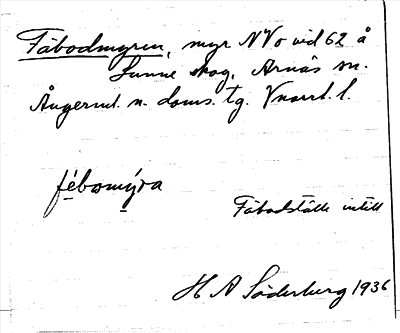 Fäbodmyren, myr NV o vid 62 å
Sunne skog, Arnäs sn.
Ångerml. n. doms. tg. Vnorrl. l.
fébomýra
Fäbodställe intill
H A Söderberg 1936